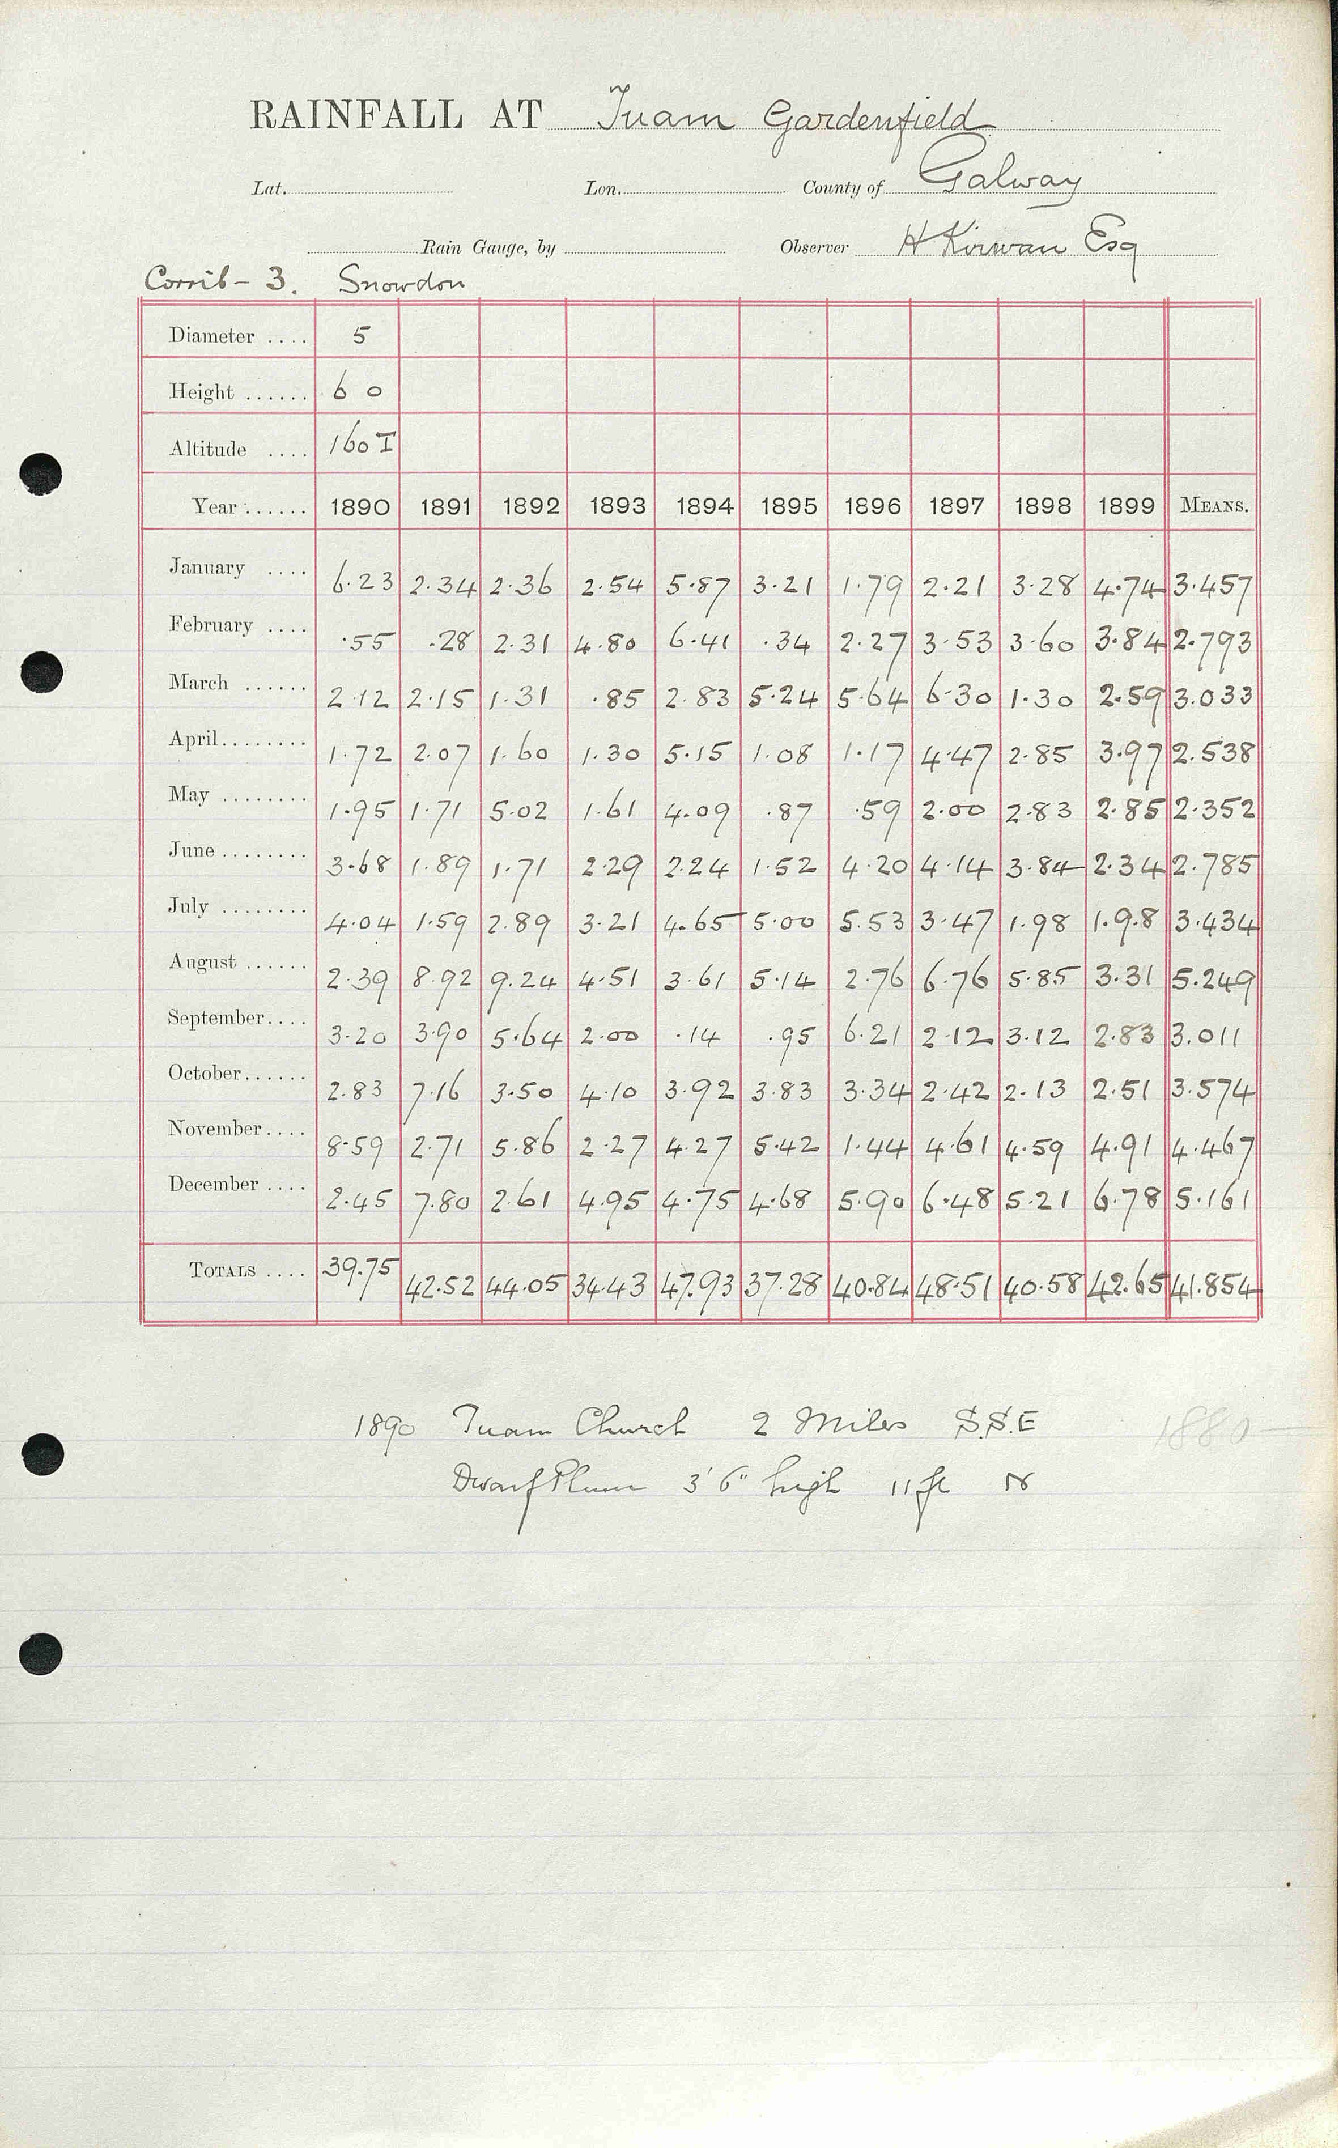 RAINFALL AT Tuam Gardenfield
Lat. Lon. County of Galway
Rain Gauge, by Observer H Kirwan Esq
Corrib - 3. Snowdon
Diameter .... 5
Height ...... 6 0
Altitude .... 160 I
Year ...... 1890 1891 1892 1893 1894 1895 1896 1897 1898 1899 MEANS.
January .... 6.23 2.34 2.36 2.54 5.87 3.21 1.79 2.21 3.28 4.74 3.457
February .... .55 .28 2.31 4.80 6.41 .34 2.27 3.53 3.60 3.84 2.793
March ...... 2.12 2.15 1.31 .85 2.83 5.24 5.64 6.30 1.30 2.59 3.033
April........ 1.72 2.07 1.60 1.30 5.15 1.08 1.17 4.47 2.85 3.97 2.538
May ........ 1.95 1.71 5.02 1.61 4.09 .87 .59 2.00 2.83 2.85 2.352
June ........ 3.68 1.89 1.71 2.29 2.24 1.52 4.20 4.14 3.84 2.34 2.785
July ........ 4.04 1.59 2.89 3.21 4.65 5.00 5.53 3.47 1.98 1.9.8 3.434
August ...... 2.39 8.92 9.24 4.51 3.61 5.14 2.76 6.76 5.85 3.31 5.249
September.... 3.20 3.90 5.64 2.00 .14 .95 6.21 2.12 3.12 2.83 3.011
October...... 2.83 7.16 3.50 4.10 3.92 3.83 3.34 2.42 2.13 2.51 3.574
November.... 8.59 2.71 5.86 2.27 4.27 5.42 1.44 4.61 4.59 4.91 4.467
December .... 2.45 7.80 2.61 4.95 4.75 4.68 5.90 6.48 5.21 6.78 5.161
TOTALS .... 39.75 42.52 44.05 34.43 47.93 37.28 40.84 48.51 40.58 42.65 41.854
1890 Tuam Church 2 Miles S.S.E 1880 -
Dwarf Plum 3' 6" high 11 ft N